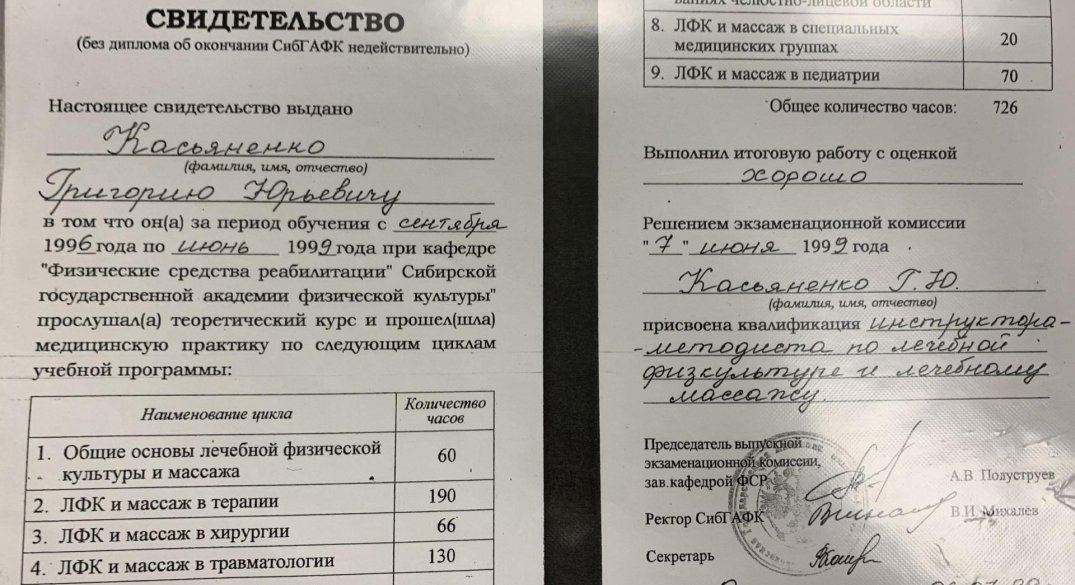 СВИДЕТЕЛЬСТВО
(без диплома об окончании СибГАФК недействительно)
Настоящее свидетельство выдано
Касьяненко
(фамилия, имя, отчество)
Григорию Юрьевичу
в том что он(а) за период обучения с сентября
1996 года по июнь 1999 года при кафедре
"Физические средства реабилитации" Сибирской
государственной академии физической культуры"
прослушал(а) теоретический курс и прошел(шла)
медицинскую практику по следующим циклам
учебной программы:
Наименование цикла Количество часов
1. Общие основы лечебной физической
культуры и массажа 60
2. ЛФК и массаж в терапии 190
3. ЛФК и массаж в хирургии 66
4. ЛФК и массаж в травматологии 130
ваниях челюстно-лицевой области
8. ЛФК и массаж в специальных
медицинских группах 20
9. ЛФК и массаж в педиатрии 70
Общее количество часов: 726
Выполнил итоговую работу с оценкой
хорошо
Решением экзаменационной комиссии
"7" июня 1999 года
Касьяненко Г.Ю.
(фамилия, имя, отчество)
присвоена квалификация инструктора-
-методиста по лечебной
физкультуре и лечебному
массажу.
Председатель выпускной
экзаменационной комиссии,
зав.кафедрой ФСР А.В. Полуструев
Ректор СибГАФК В.И. Михалёв
Секретарь